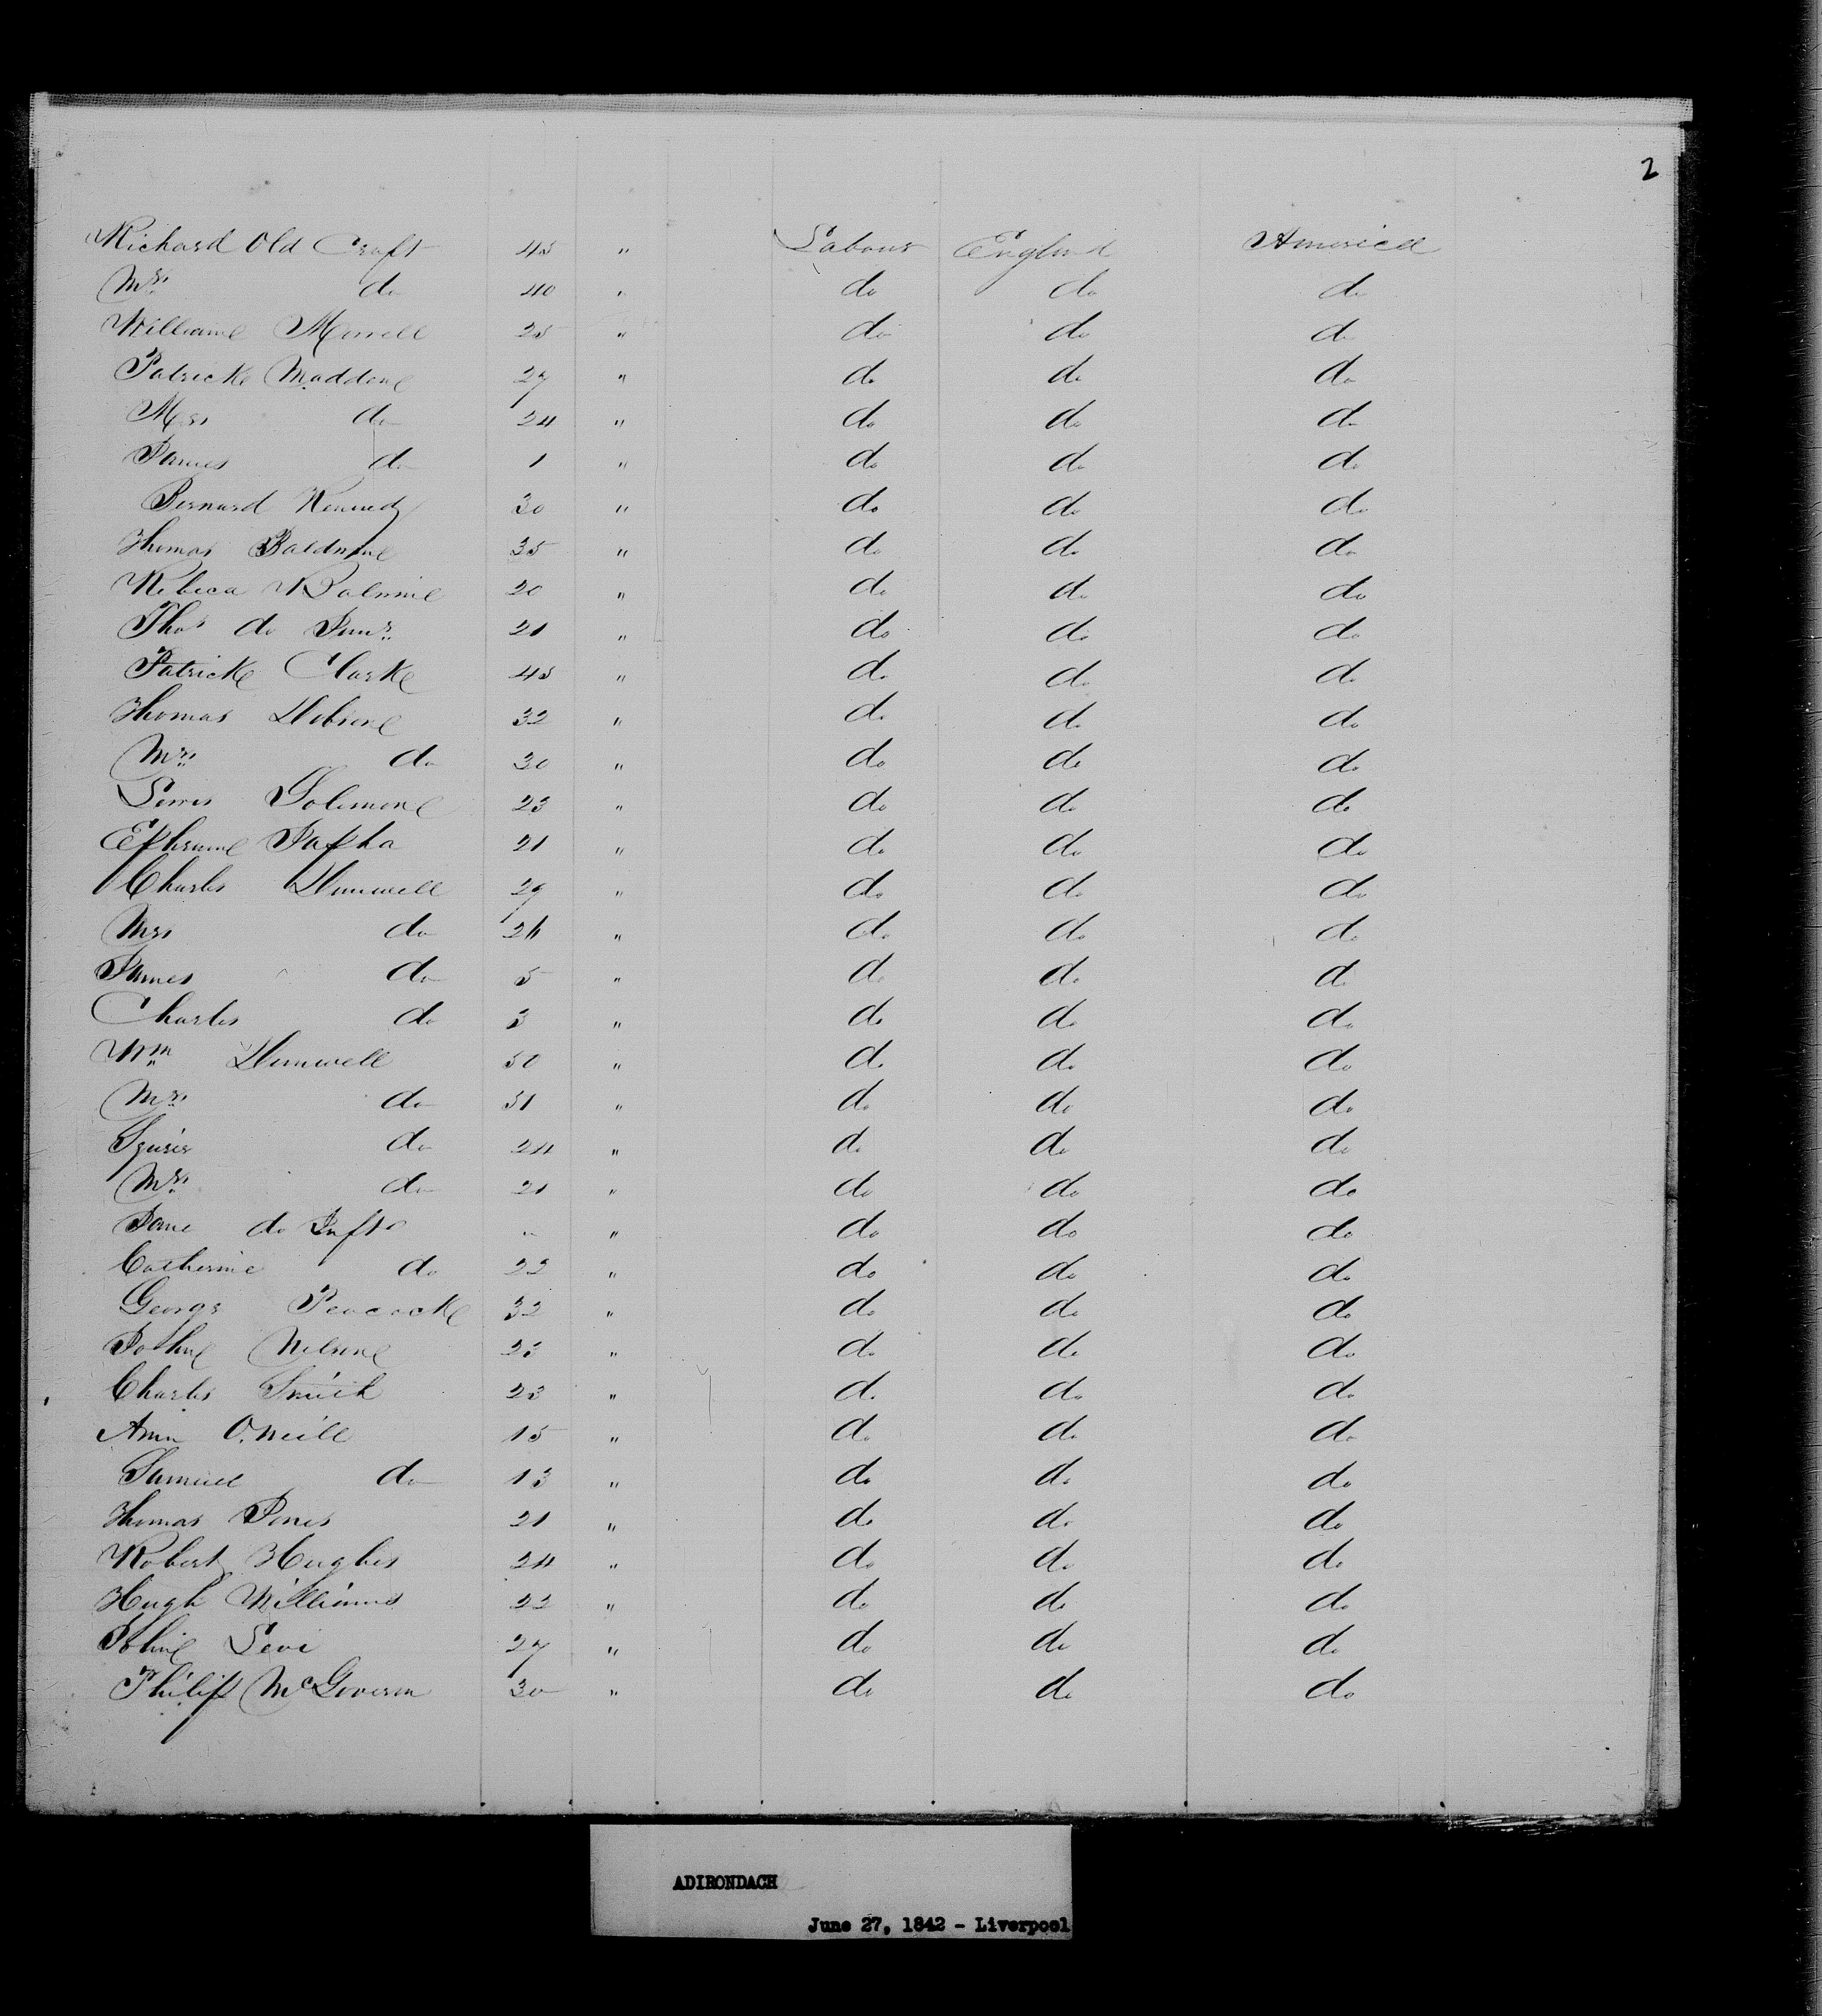 2
Richard Old Croft 45 " Labour England America
Mrs. do 40 " do do do
William Morrell 25 " do do do
Patrick Madden 27 " do do do
Mrs do 24 " do do do
James do 1 " do do do
Bernard Kennedy 30 " do do do
Thomas Baldwin 35 " do do do
Rebeca 20 " do do do
Thos do Junr. 21 " do do do
Patrick Clark 45 " do do do
Thomas 32 " do do do
Mrs. do 30 " do do do
Lewis Solomon 23 " do do do
Ephram 21 " do do do
Charles 29 " do do do
Mrs do do do do
James do 5 " do do do
Charles do 3 " do do do
Wm 50 " do do do
Mrs. do 51 " do do do
Squire do 24 " do do do
Mrs. do 21 " do do do
Jane do Inft " " do do do
Catherine do 22 " do do do
George Peacock 32 " do do do
John Nelson 23 " do do do
Charles Smith 23 " do do do
Ann O.Neill 15 " do do do
Samuel do 13 " do do do
Thomas Jones 21 " do do do
Robert Hughes 24 " do do do
Hugh Williams 22 " do do do
John Levi 27 " do do do
Philip McGovern 30 " do do do
ADIRONDACH
June 27, 1842 - Liverpool